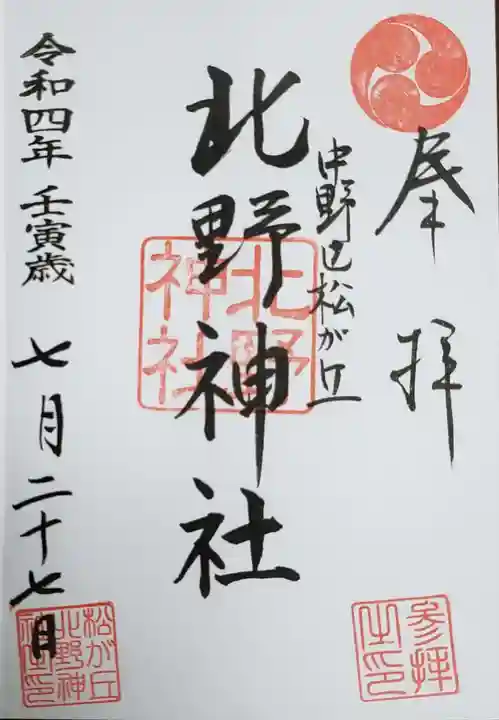 奉拝
中野区松が丘
北野神社
北野神社
令和四年 壬寅歳 七月二十七日
参拝之印
松が丘北野神社印